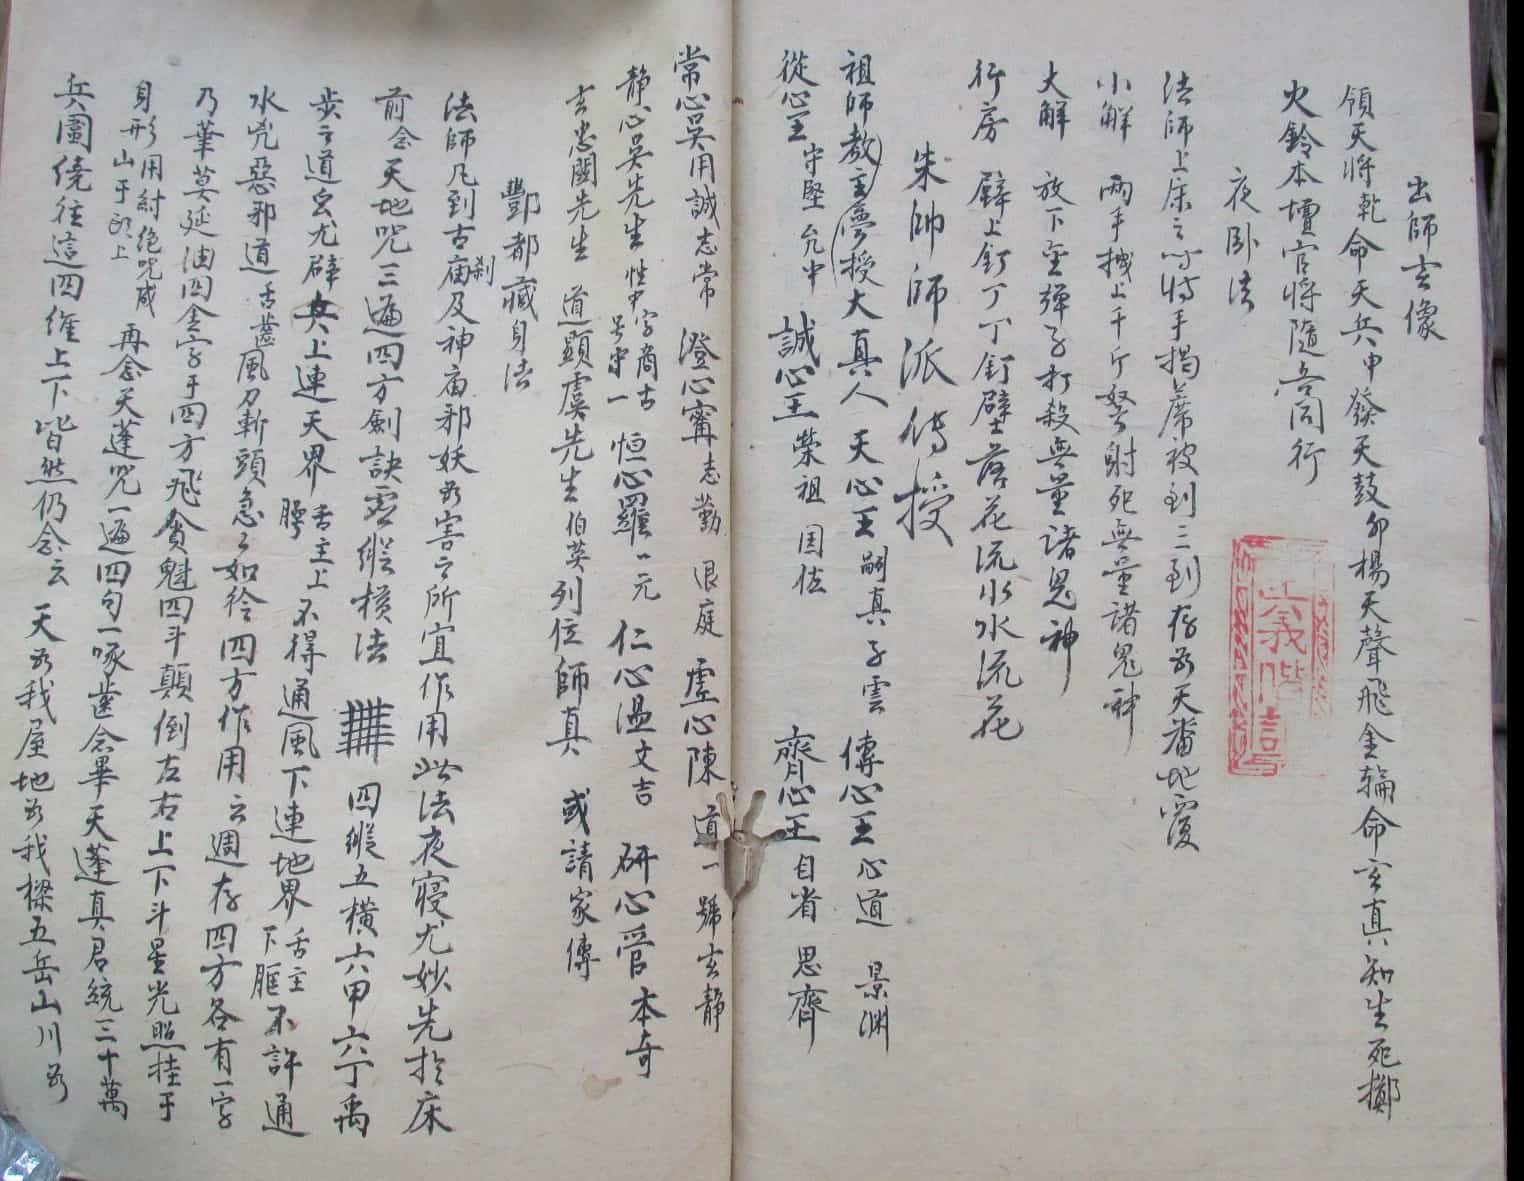 出師玄像
領天將乾命天兵申發天鼓卯楊天聲飛金輪命玄真知生死擲
火鈴本壇官將隨吾同行
夜卧法
法師上床之时將手揭蓆被到三到存为天番地覆
小解 兩手搣上千斤弩射死無量諸鬼神
大解 放下金弹子打殺無量諸鬼神
行房 壁上釘丁丁釘壁落花流水水流花
朱帥師派傳授
祖師教主夢授大真人 天心王嗣真子雲 傳心王心道 景渊
從心王守堅允中 誠心王荣祖国佐 齊心王自省 思齊
常心吳用誠志常 澄心寗志勤 退庭 虛心陳道一號玄静
静心吳先生性中字商古号守一 恒心羅一元 仁心溫文吉 研心管本奇
玄忠閔先生 道顯虞先生伯英列位師真 或請家傳
酆都藏身法
法師凡到古廟刹及神庙邪妖为害之所宜作用此法夜寢尤妙先於床
前念天地咒三遍四方劍訣画縱横法 四縱五横六甲六丁禹
步之道蚩尤辟兵上連天界 舌主上腭 不得通風下連地界 舌主下腭 不許通
水兇惡邪道舌薑風刀斬頭急々如律 四方作用云週存四方各有一字
乃華莫延油四金字于四方飛贪魁四斗顛倒左右上下斗星光照挂于
身形 用紂絶咒咸山于卧上 再念天蓬咒一遍四句一啄齒念畢天蓬真君統三十萬
兵圍繞往這四維上下皆然仍念云 天为我屋地为我樑五岳山川为